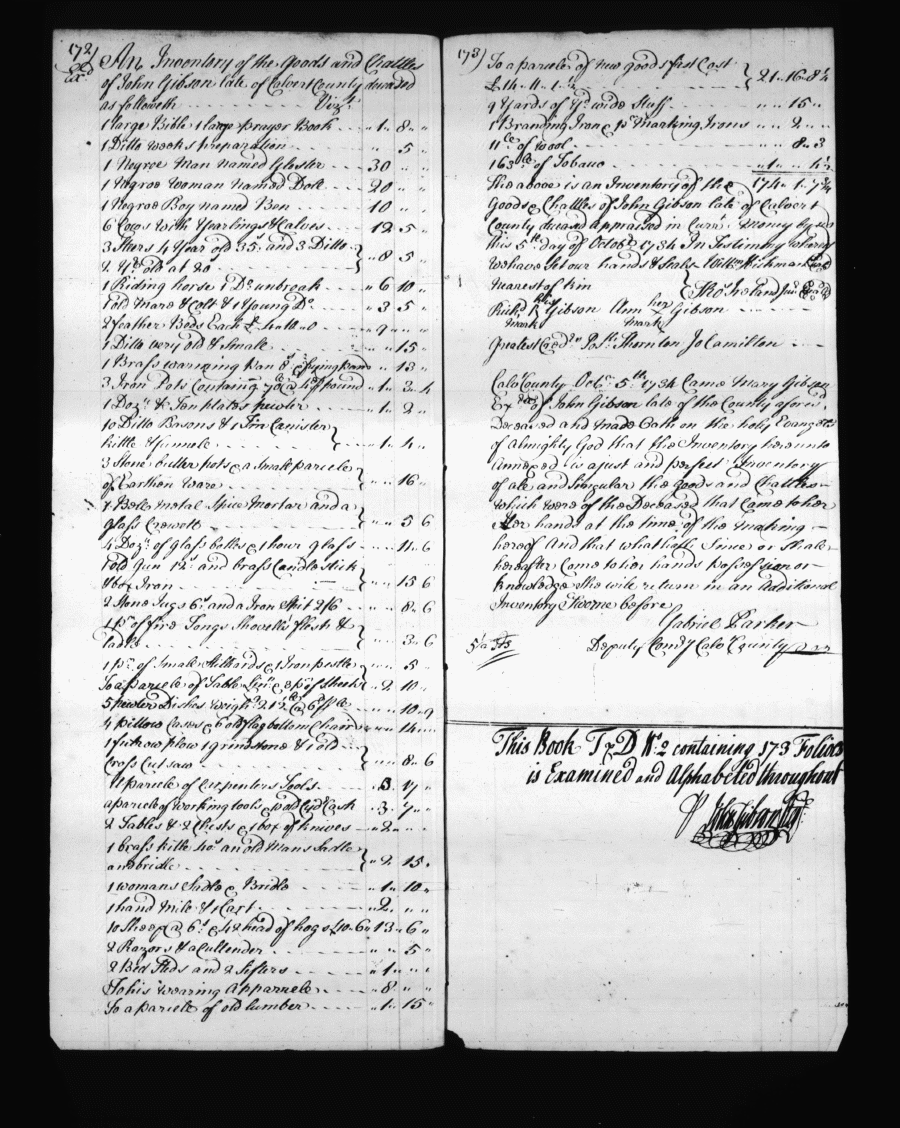 172)
An Inventory of the Goods and Chattles
of John Gibson late of Calvert County deceased
as followeth Vizt
1 large Bible 1 large prayer Book - - - " 1 " 8 "
1 Ditto weeks preparation - - - " " 5 "
1 Negroe Man named Gloster - - - 30 " "
1 Negroe Woman named Doll - - - 20 " "
1 Negroe Boy named Ben - - - 10 " "
6 Cows with Yearlings & Calves - - - 12 5 "
3 Stears 4 Year old 35s and 3 Ditto
2 Yrs old at 20 - - - " 8 5 "
1 Riding horse 1 Do unbroak - - - " 6 10 "
1 old Mare & Colt & 1 Young Do - - - " 3 5 "
2 feather Beds Each - - - " 9 " "
1 Ditto very old & Small - - - " " 15 "
1 Brass warming pan 8s frying pan - - " " 13 "
3 Iron Pots Containg pound - " 1 " 3 " 4
1 Dozn & Ten plates pewter - - - " 1 " 2 "
10 Ditto Basons & 1 Tin Canister
kittle & funnele - - - " 1 " 4 "
3 Stone butter pots & a Small parcele
of Earthen Ware - - - " " 16 "
1 Bell metal Spice Mortar and a
glass Crewett - - - " " 5 6
4 Dozn of Glass bottles & 1 hour glass - - - " " 11 " 6
1 old Gun 12s and brass Candlestick
& box Iron - - - " " 15 6
2 Stone Jugs 6s and a Iron Spit 2/6 - - - " " 8 " 6
1 pr of fire Tongs Shovell flesh &
ladle - - - " " 3 " 6
1 pr of Small Stilliards & 1 Iron pestle " " 5 "
To a parcele of Table Linn & pr of Sheets " 2 10 "
5 pewter Dishes Weighg 21 " " 10 " 9
4 pillow Cases & 6 old flag bottom Chairs " " 14 "
1 futrow plow 1 grindstone & 1 old
Cross Cut saw - - - " " 8 " 6
A parcele of Carpenters Tools - - - " 3 17 "
a parcele of working tools & old Cydr Cask " 3 " 7 "
2 Tables & 2 Chests & 1 box of knives - - " 2 " "
1 brass kittle 40s an old Mans Sadle
and bridle - - - " 2 15 "
1 womans Sadle & Bridle - - - " 1 " 10 "
1 hand Mill & 1 Cart - - - " 2 " "
10 Sheep @ 6s & 42 head of hogs £10-6 " 13 " 6 "
2 Razors & a Cullender - - - " " 5 "
2 Bed Steds and 2 Sifters - - - " 1 " "
To his wearing Apparrele - - - " 8 " "
To a parcele of old lumber - - - " 1 " 15 "
173)
To a parcele of new goods first Cost
£ 14 - 11 - 1 - ½ 21 - 16 - 8 ¼
9 Yards of Yd wide Stuff - - - " " 15 "
1 Branding Iron & pr Marking Irons " " 2 "
11 lb of wool - - - " " 8 " 3
163 lb of Tobaco - - - " 1 "
The above is an Inventory of the 174 " 1 - 7 ¾
Goods & Chattles of John Gibson late of Calvert
County deceased appraised in Currt Money by us
this 5th day of Octobr 1734 In Testimony whereof
we have Set our hands & Seals Willm Hickman
nearest of kin Thos Ireland junr
Richd R Gibson Ann her X Gibson - - -
mark mark
Greatest Credrs Posth: Thornton Jo Hamilton - - -
Calvt County Octr 5th 1734 Came Mary Gibson
Exx of John Gibson late of the County aforesd
Deceased and made Oath on the holy Evangels
of Almighty God that the Inventory hereunto
Annexed is a just and perfect Inventory
of all and Singular the goods and Chattles
which were of the Deceased that Came to her
her hands at the time of the making
hereof And that what hath Since or Shall
hereafter Come to her hands possession or
Knowledge She will return in an Additional
Inventory Swore before
Gabriel Parker
Deputy Comry Calvt County
This Book T & D No 2 containing 173 Folios
is Examined and Alphabeted throughout